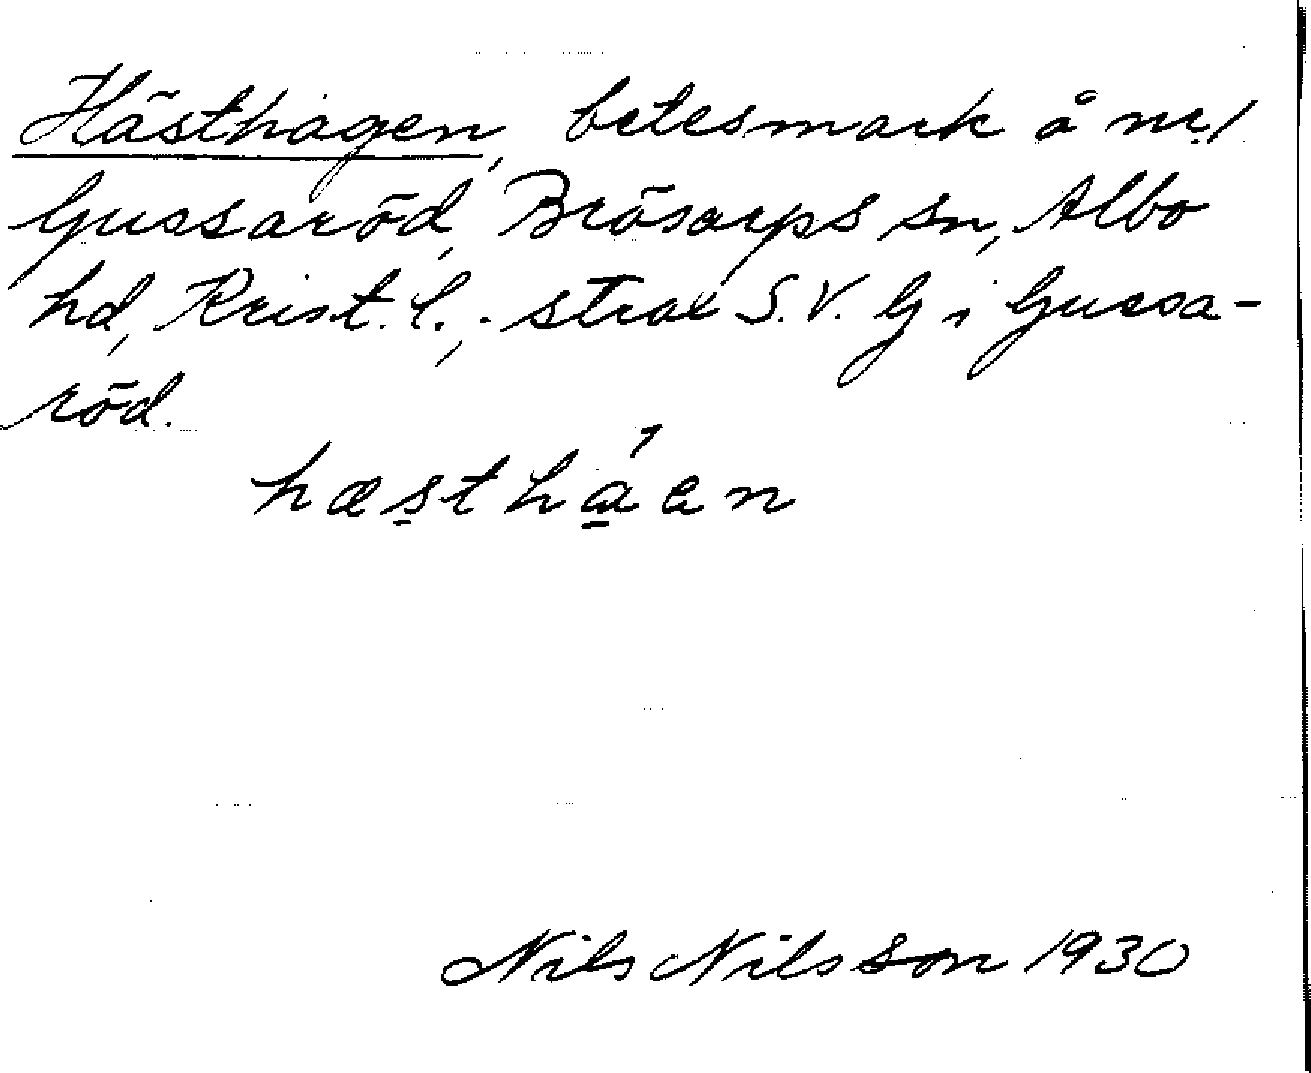 Hästhagen, betesmark å nr 1
Gussaröd, Brösarps sn, Albo
hd, Krist. l., strax S.V. G i Gussa-
röd.
hæsthá̱en
Nils Nilsson 1930